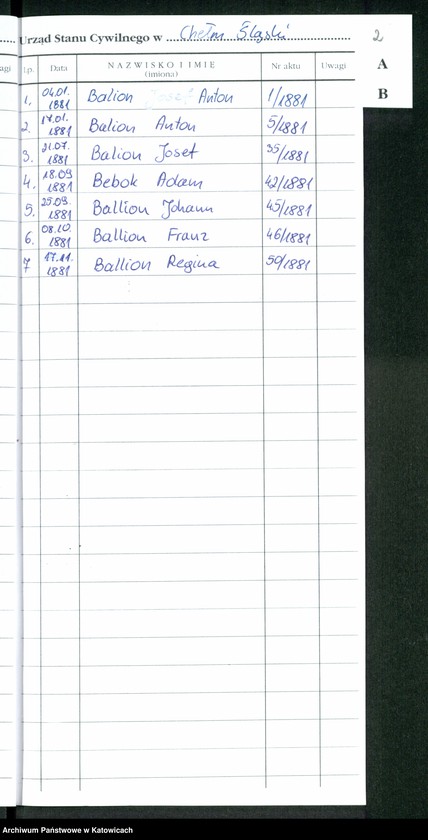 Urząd Stanu Cywilnego w Chełm Śląski
2
agi Lp. Data NAZWISKO I IMIĘ (imiona) Nr aktu Uwagi
A
B
1. 04.01.1881 Balion Josef Anton 1/1881
2. 17.01.1881 Balion Anton 5/1881
3. 21.07.1881 Balion Josef 35/1881
4. 18.09 1881 Bebok Adam 42/1881
5. 25.09.1881 Ballion Johann 45/1881
6. 08.10.1881 Ballion Franz 46/1881
7 17.11.1881 Ballion Regina 50/1881
Archiwum Państwowe w Katowicach